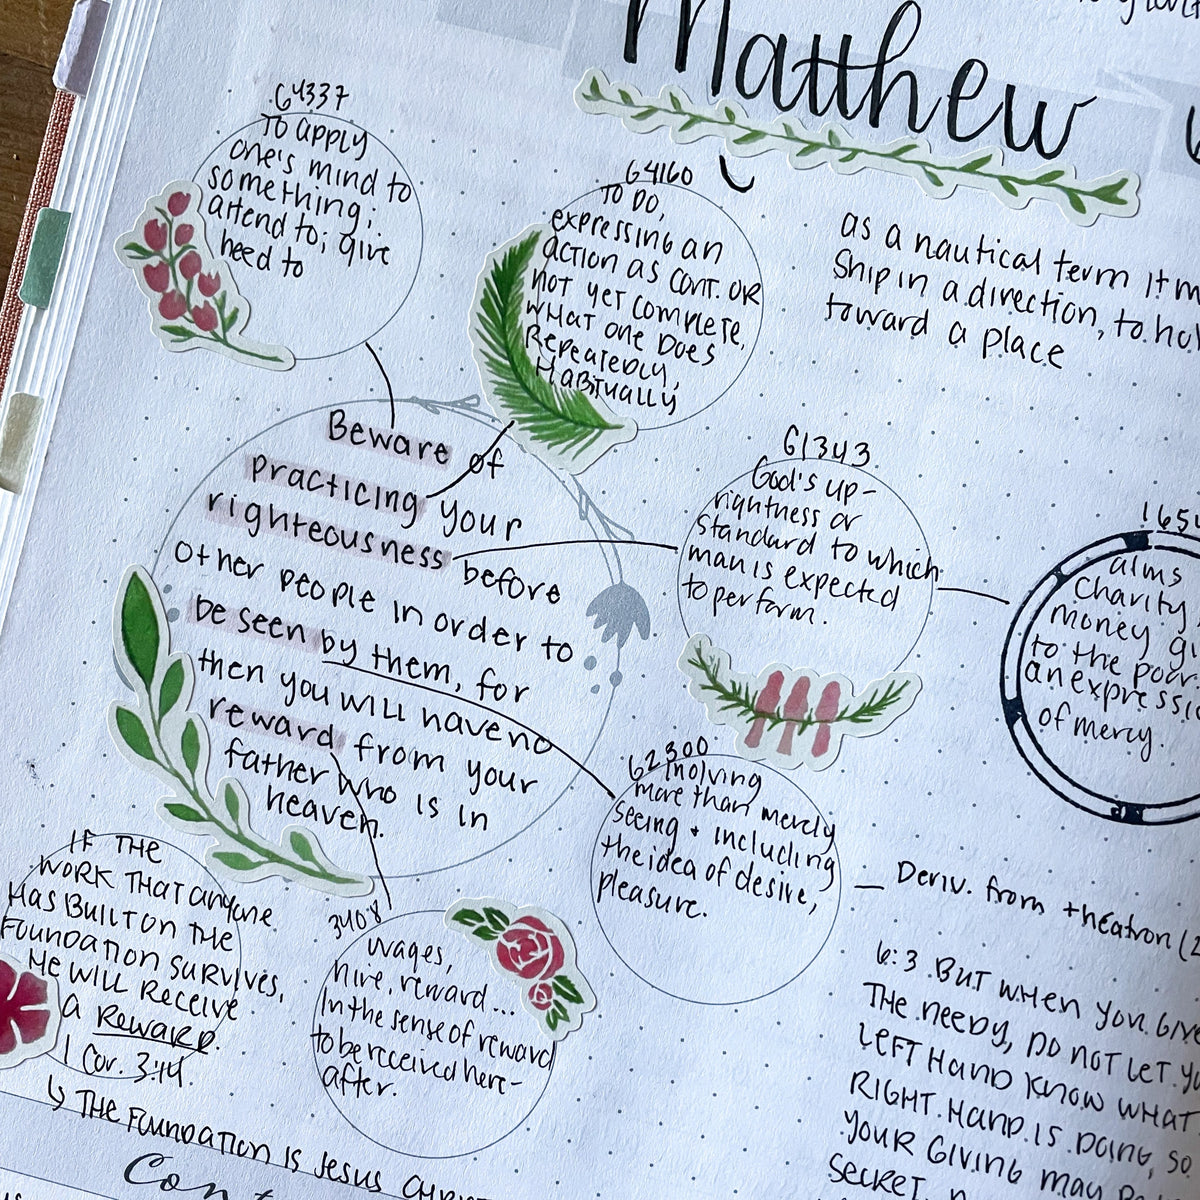 Matthew
G4337
To apply
one's mind to
something;
attend to; give
heed to
G4160
TO DO,
expressing an
ACTION AS CONT. OR
NOT YET COMPLETE,
WHAT ONE DOES
REPEATEDLY,
HABITUALLY
as a nautical term it m
ship in a direction, to ho
toward a place
Beware of
practicing your
righteousness before
other people in order to
be seen by them, for
then you will have no
reward from your
father who is in
heaven.
G1343
God's up-
rightness or
standard to which
man is expected
to perform.
1651
alms
charity,
money gi
to the poor.
an expressio
of mercy.
G2300
inolving
more than merely
seeing + including
the idea of desire,
pleasure.
Deriv. from theatron (2
3408
wages,
hire, reward...
In the sense of reward
to be received here-
after.
IF THE
WORK THAT anyone
HAS BUILT ON THE
FOUNDATION SURVIVES,
HE WILL RECEIVE
a REWARD.
1 Cor. 3:14.
↳ THE FOUNDATION IS JESUS CHRIST
Cont
6:3 BUT WHEN YOU GIVE
THE NEEDY, DO NOT LET YO
LEFT HAND KNOW WHAT
RIGHT HAND IS DOING, SO
YOUR GIVING MAY
SECRET.